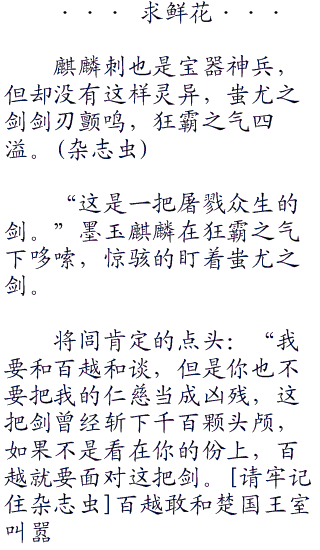 ··· 求鲜花···
麒麟刺也是宝器神兵，
但却没有这样灵异，蚩尤之
剑剑刃颤鸣，狂霸之气四
溢。(杂志虫)
“这是一把屠戮众生的
剑。”墨玉麒麟在狂霸之气
下哆嗦，惊骇的盯着蚩尤之
剑。
将闾肯定的点头：“我
要和百越和谈，但是你也不
要把我的仁慈当成凶残，这
把剑曾经斩下千百颗头颅，
如果不是看在你的份上，百
越就要面对这把剑。[请牢记
住杂志虫]百越敢和楚国王室
叫嚣